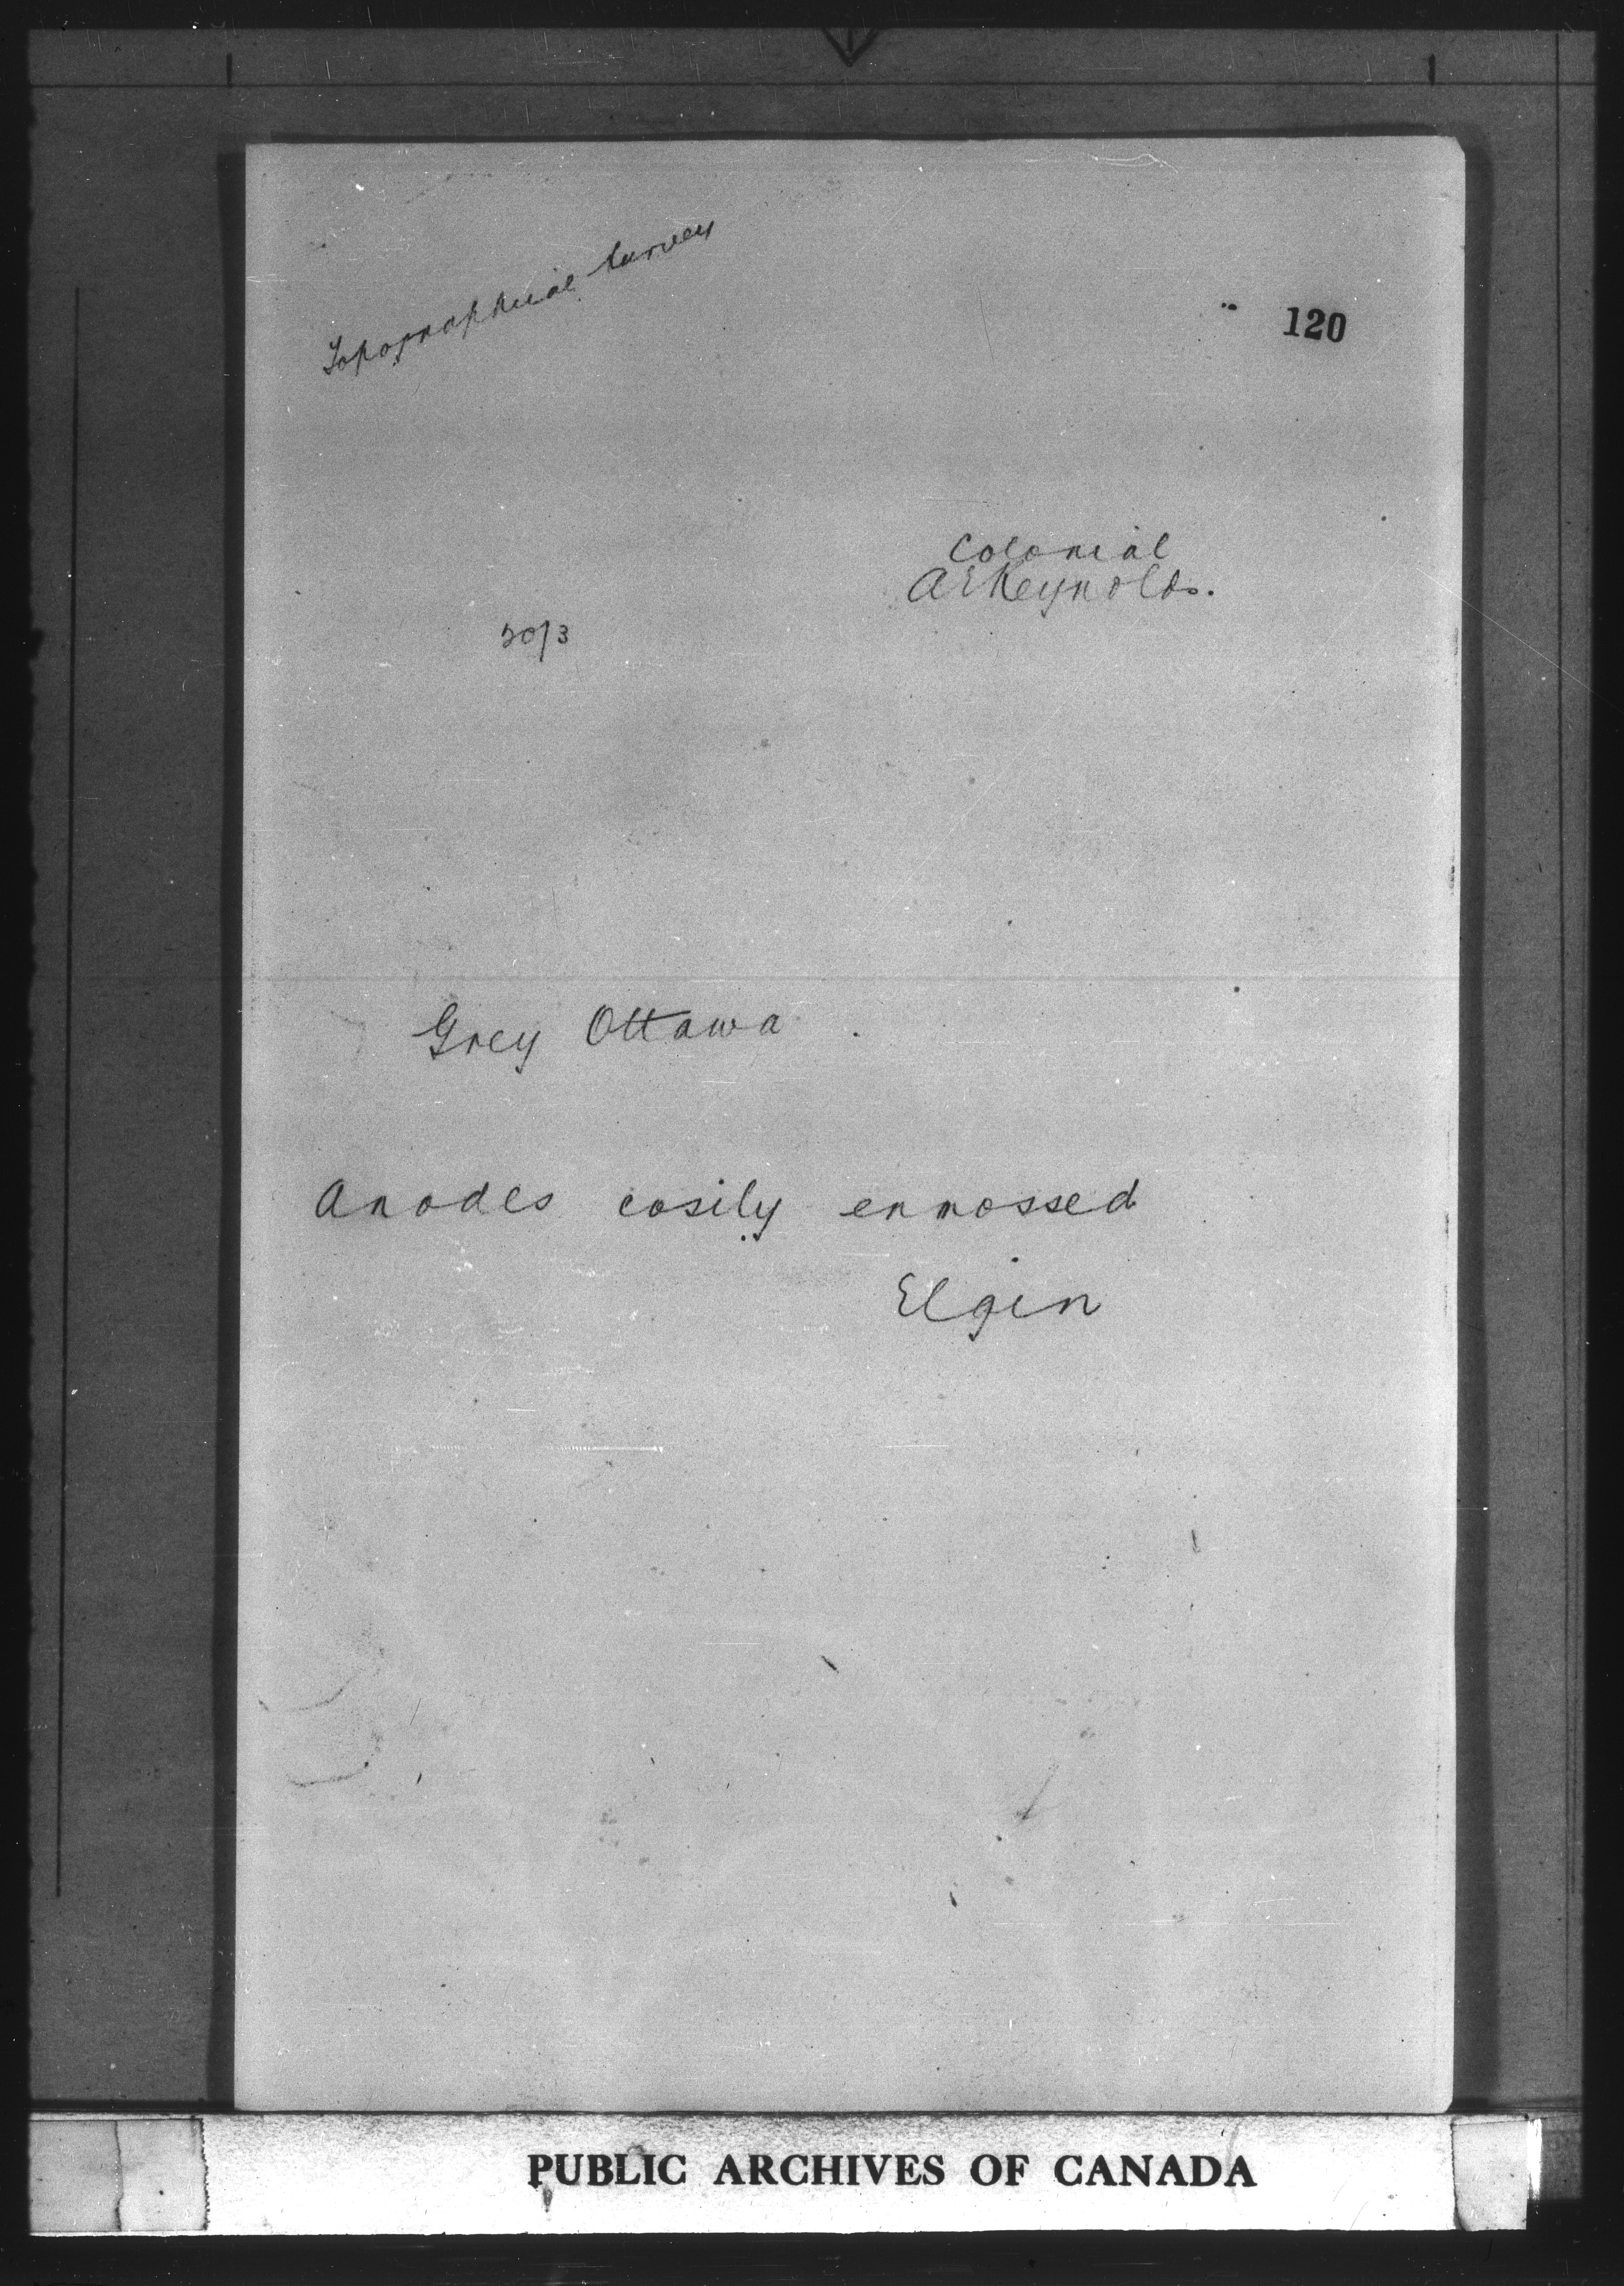 Topographical Survey
120
Colonial
A E Reynolds.
20/3
Grey Ottawa
Anodes cosily enmossed
Elgin
PUBLIC ARCHIVES OF CANADA